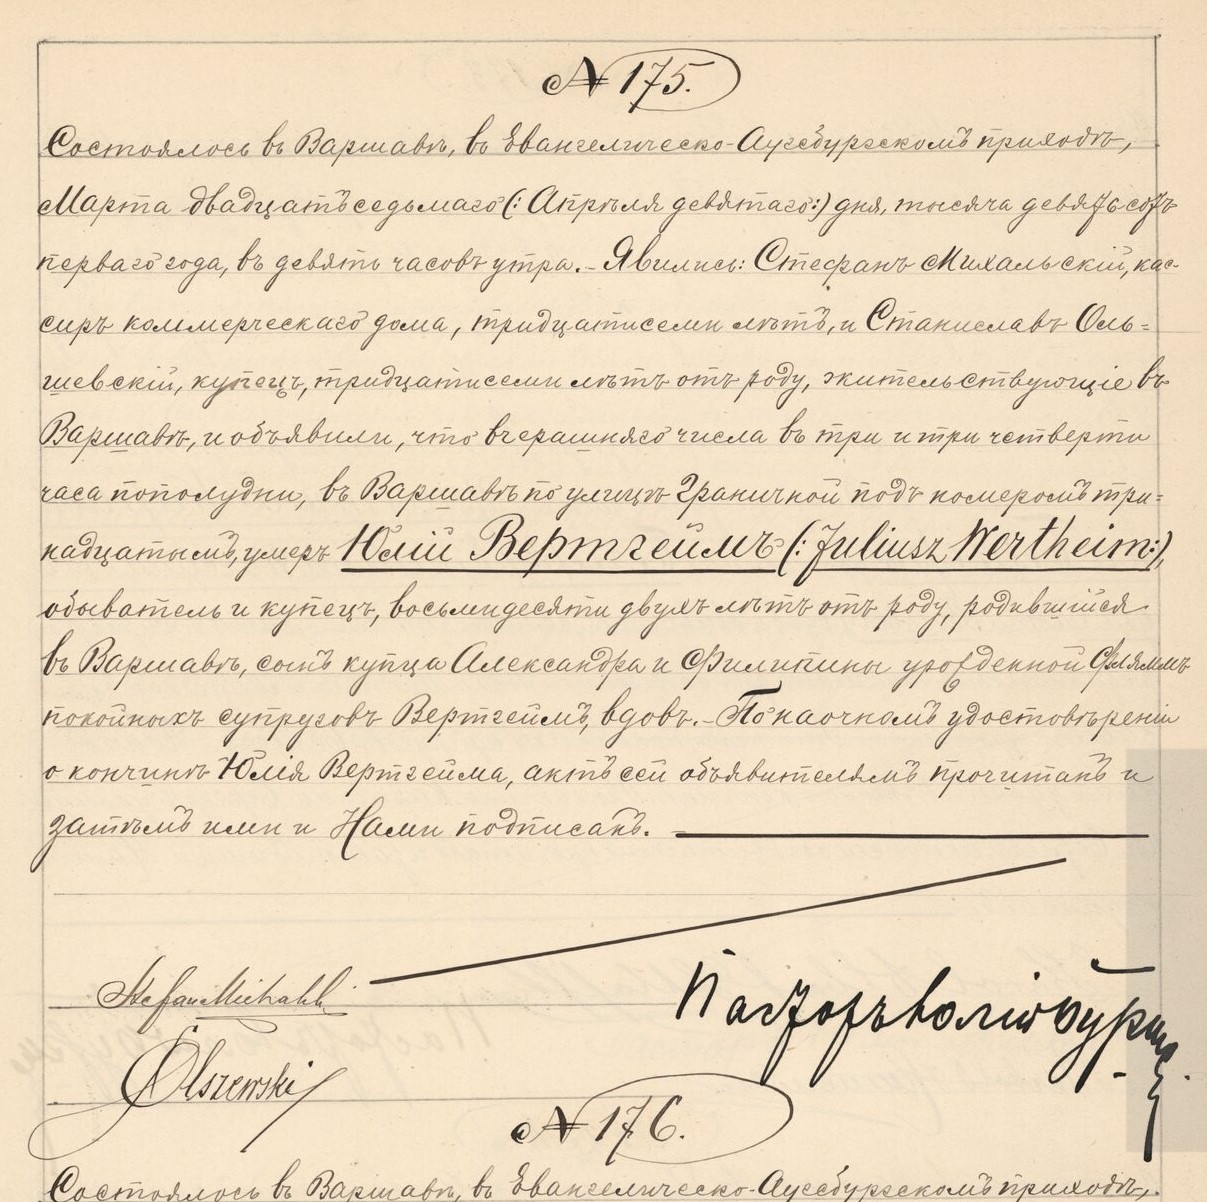 № 175.
Состоялось въ Варшавѣ, въ Евангелическо-Аугсбургскомъ приходѣ,
Марта двадцатьседьмаго (: Апрѣля девятаго :) дня, тысяча девятьсотъ
перваго года, въ девять часовъ утра. – Явились: Стефанъ Михальскій, кас-
сиръ коммерческаго дома, тридцатисеми лѣтъ, и Станиславъ Оль=
шевскій, купецъ, тридцатисеми лѣтъ отъ роду, жительствующіе въ
Варшавѣ, и объявили, что вчерашняго числа въ три и три четверти
часа пополудни, въ Варшавѣ по улицѣ Граничной подъ номеромъ три=
надцатымъ, умеръ Юлій Вертгеймъ (: Juliusz Wertheim :),
обыватель и купецъ, восьмидесяти двухъ лѣтъ отъ роду, родившійся
въ Варшавѣ, сынъ купца Александра и Филипины урожденной Фламмъ
покойныхъ супруговъ Вертгеймъ, вдовъ. – По наочномъ удостовѣреніи
о кончинѣ Юлія Вертгейма, актъ сей объявителямъ прочитанъ и
затѣмъ ими и Нами подписанъ.
Stefan Michalski
Пасторъ Юлій Бурше
Olszewski
№ 176.
Состоялось въ Варшавѣ, въ Евангелическо-Аугсбургскомъ приходѣ,